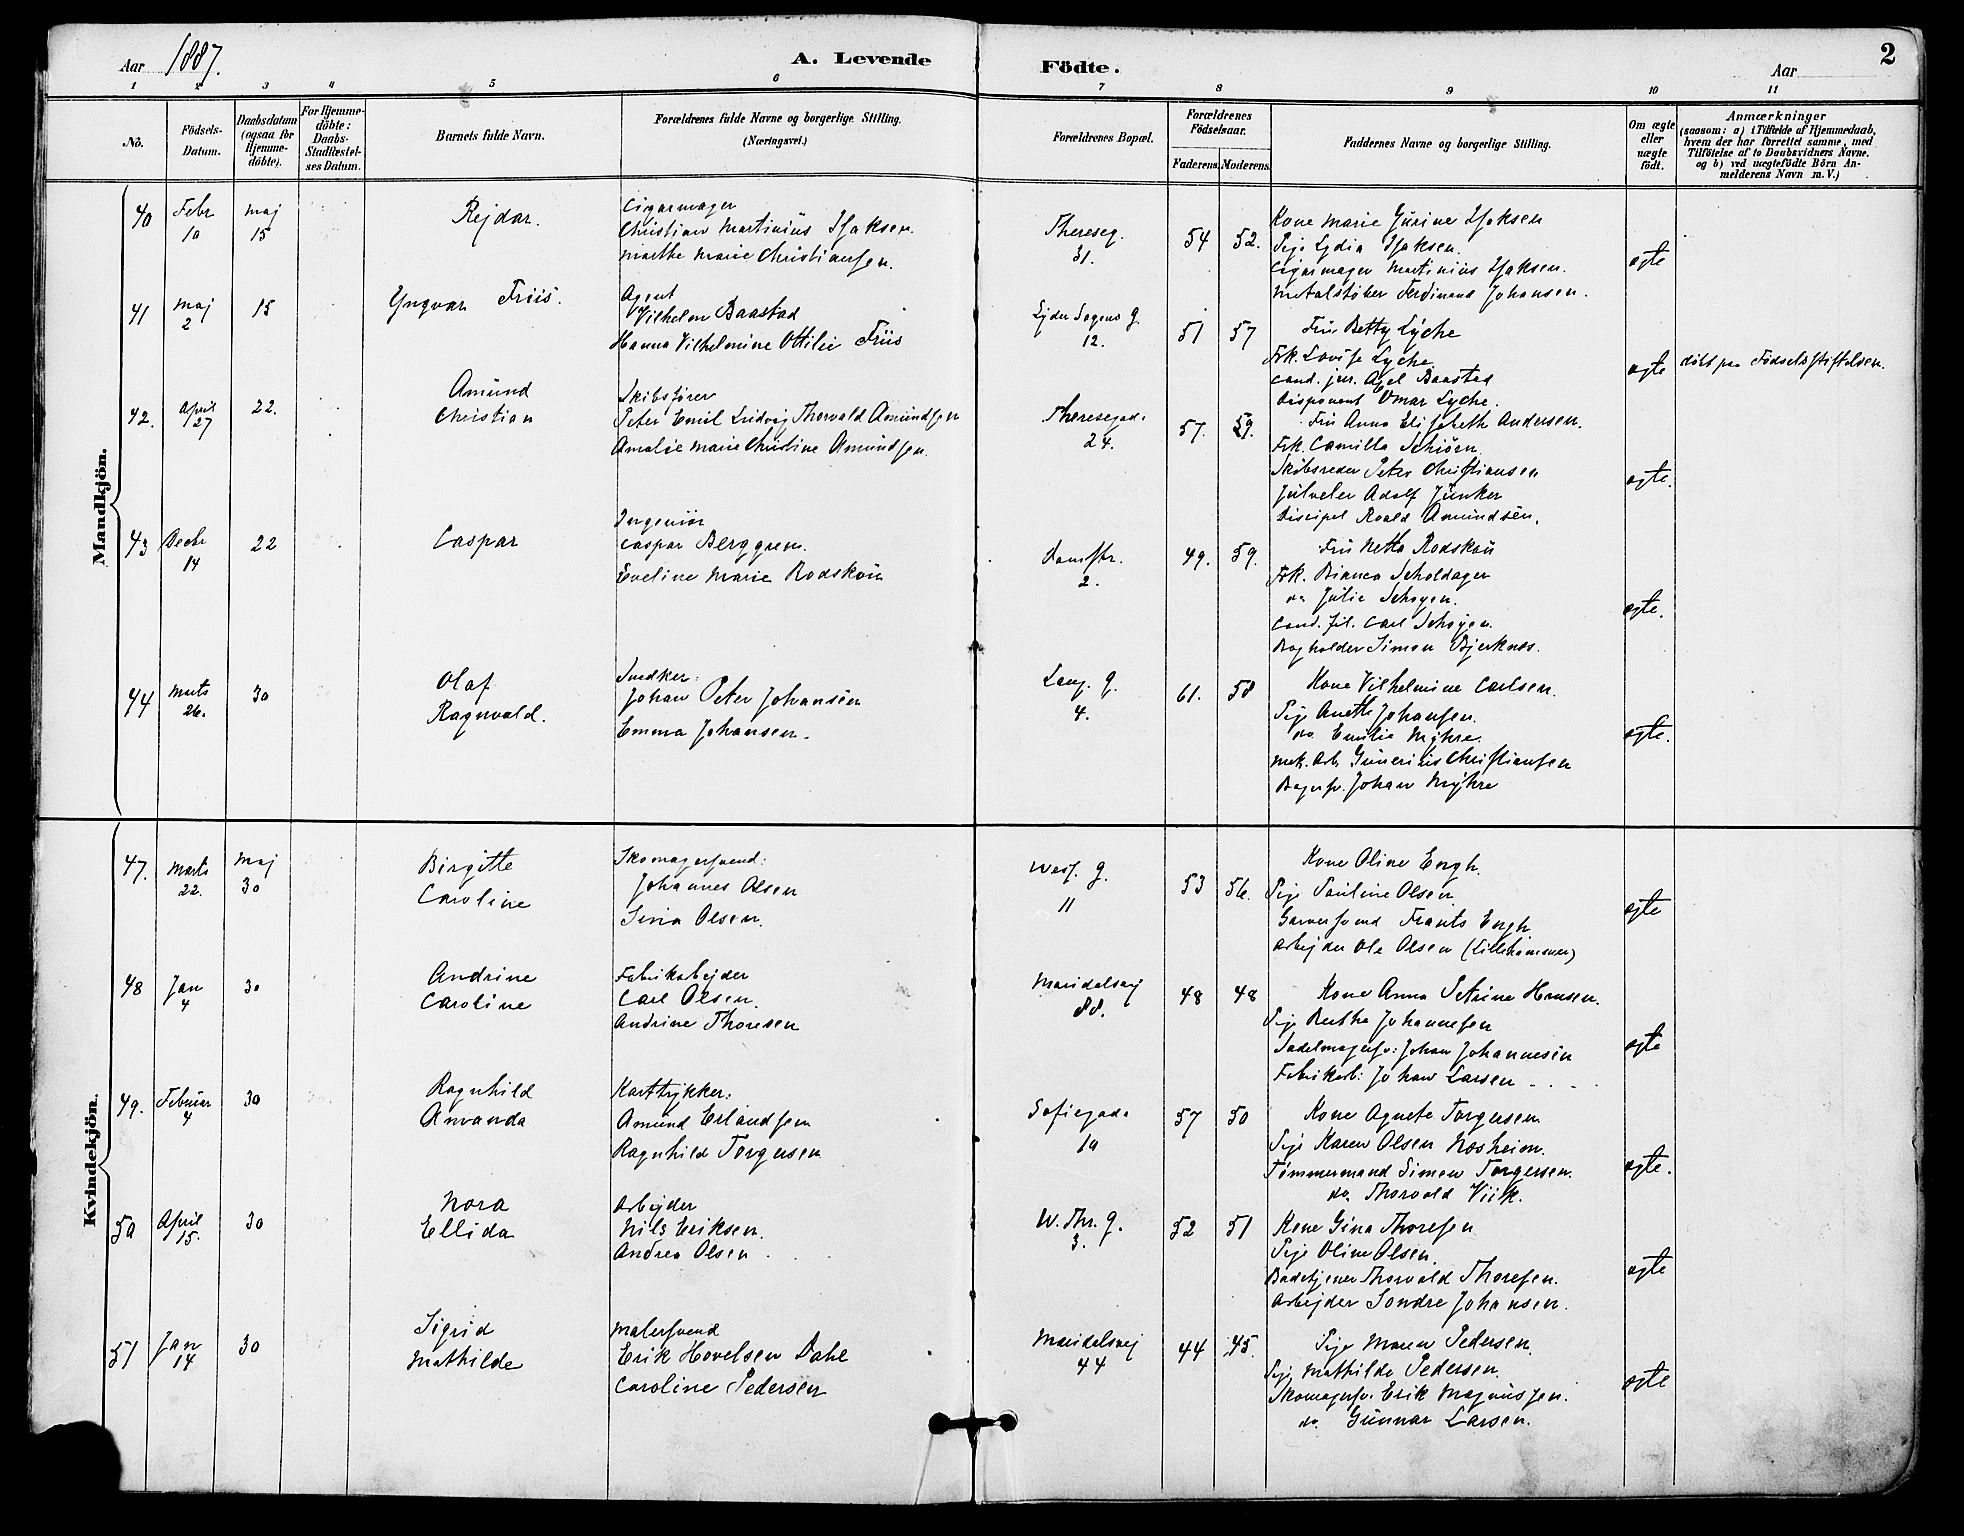 Aar 1887.
A. Levende
Födte.
Aar
2
1 2 3 4 5 6 7 8 9 10 11
No.
Födsels-
Datum.
Daabsdatum
(ogsaa for
Hjemme-
döbte).
For Hjemme-
döbte:
Daabs-
Stadfæstel-
ses Datum.
Barnets fulde Navn.
Forældrenes fulde Navne og borgerlige Stilling.
(Næringsvei.)
Forældrenes Bopæl.
Forældrenes
Födselsaar.
Faderens. Moderens.
Faddernes Navne og borgerlige Stilling.
Om ægte
eller
uægte
födt.
Anmærkninger
(saasom: a) i Tilfælde af Hjemmedaab,
hvem der har forrettet samme, med
Tilföielse af to Daabsvidners Navne.
og b) ved uægtefödte Börn An-
melderens Navn m. V.)
Mandkjön.
40
Febr
10
Maj
15
Rejdar.
Cigarmager
Christian Martinius Isaksen
Marthe Marie Christiansen.
Thereseg.
31.
54
52.
Kone Marie Gurine Isaksen
Pige Lydia Isaksen.
Cigarmager Martinius Isaksen.
Metalstøber Ferdinand Johansen.
ægte
41
Maj
2
15
Yngvar Friis.
Agent
Vilhelm Baastad
Hanna Vilhelmine Ottilie Friis
Lyder Sagens g.
12.
51
57
Fru Betty Lyche
Frk. Lovise Lyche
Cand. jur. Axel Baastad
Disponent Omar Lyche.
ægte
døbt paa Fødselsstiftelsen.
42.
April
27
22.
Amund
Christian
Skibsfører
Peter Emil Ludvig Thorvald Amundsen
Amalie Marie Christine Amundsen.
Theresegad.
24.
57.
59.
Fru Anna Elisabeth Andersen.
Frk. Camilla Schiøen.
Skibsreder Peter Christiansen
Juveler Adolf Junker
Discipel Roald Amundsen.
ægte.
43
Decbr
14
22
Caspar
Ingeniør
Caspar Berggren.
Eveline Marie Rodskou
2.
49.
59.
Fru Netta Rodskou
Frk. Bianca Scholdager
do Julie Schøyen.
Cand. fil. Carl Schøyen.
Bogholder Simon Bjerknes.
ægte.
44
Marts
26.
30
Olaf
Ragnvald.
Snedker:
Johan Peter Johansen
Emma Johansen.
Lang. g.
4.
61.
58
Kone Vilhelmine Carlsen.
Pige Anette Johansen.
do Emilie Myhre.
Mek. Arb. Gunerius Christiansen
Bagersv. Johan Myhre
ægte.
Kvindekjön.
47.
Marts
22.
Maj
30
Birgitte
Caroline
Skomagersvend:
Johannes Olsen
Sina Olsen.
West. g.
11
53
56.
Kone Oline Engh.
Pige Pauline Olsen.
Garversvend Frants Engh
Arbejder Ole Olsen (Lillehammer)
ægte
48
Jan
4
30
Andrine
Caroline
Fabrikarbejder
Carl Olsen.
Andrine Thoresen
Maridalsvej
88.
48
48
Kone Anna Petrine Hansen.
Pige Berthe Johannesen
Sadelmagersv: Johan Johannesen
Fabrikarb: Johan Larsen
ægte
49.
Februar
4
30
Ragnhild
Amanda
Karttrykker:
Amund Erlandsen
Ragnhild Torgersen
Sofiegada
10
57
50
Kone Agnete Torgersen
Pige Karen Olsen Næsheim.
Tømmermand Simen Torgersen.
do. Thorvald Viik.
ægte.
50
April
15.
30
Nora
Ellida
Arbejder
Nils Eriksen.
Andrea Olsen
W. Thr. g.
3.
52
51
Kone Gina Thoresen
Pige Oline Olsen.
Badetjener Thorvald Thoresen.
Arbejder Sondre Johansen.
ægte
51
Jan
14
30
Sigrid
Mathilde
Malersvend
Erik Hovelsen Dahl
Caroline Pedersen
Maridalsvej
44
44
45.
Pige Maren Pedersen.
Pige Mathilde Pedersen.
Skomagersv. Erik Magnussen.
do. Gunnar Larsen.
ægte